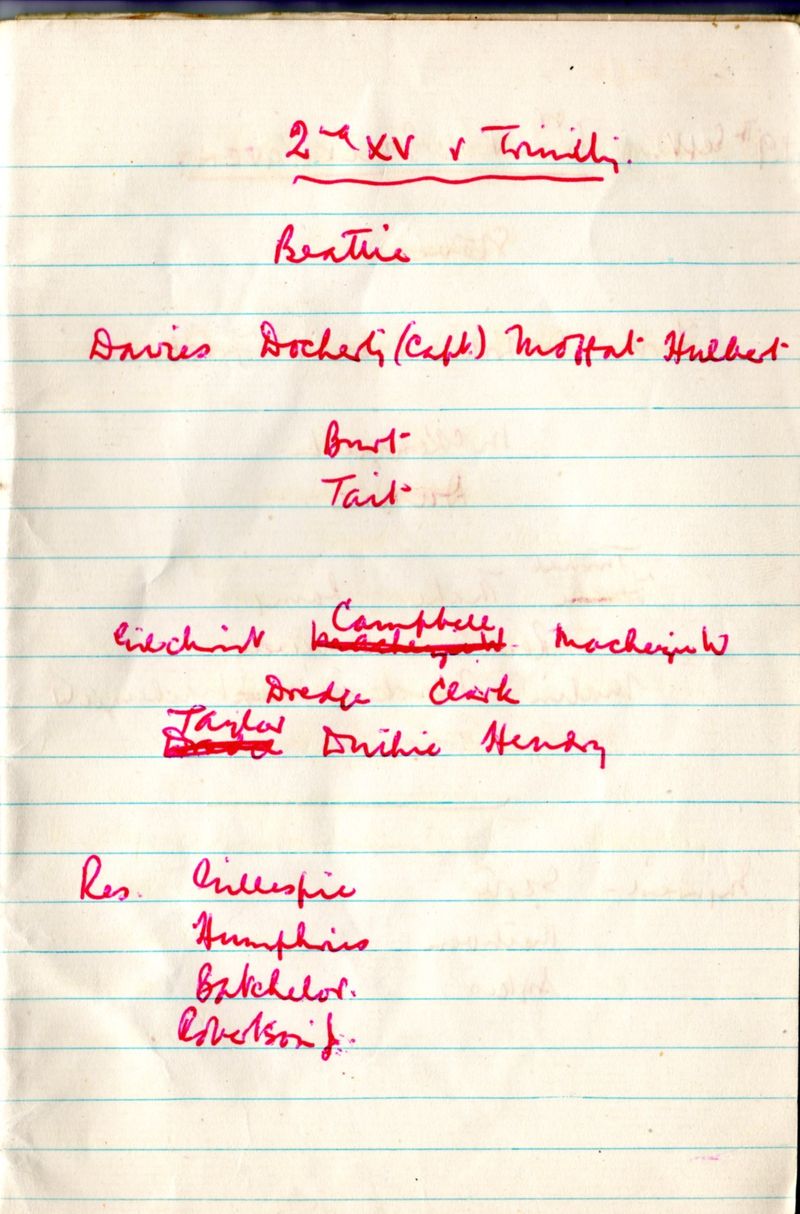 2nd XV v Trinity.
Beattie
Davies Docherty (Capt.) Moffat Hulbert
Burt
Tait
Campbell
Gilchrist Mackenzie W. Mackenzie W
Dredge Clark
Taylor
Duthie Hendry
Res. Gillespie
Humphries
Batchelor.
Robertson J.